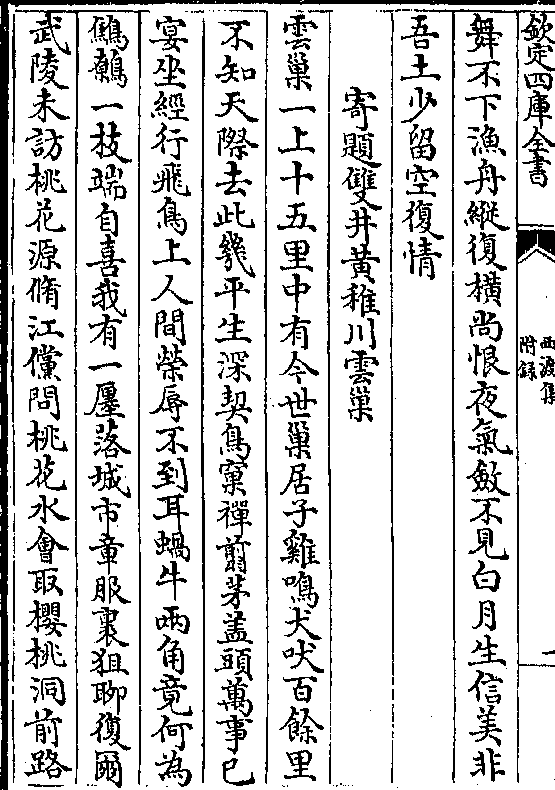 欽定四庫全書
西渡集
附録
舞不下漁舟縱復横尚恨夜氣斂不見白月生信美非
吾土少留空復情
寄題雙井黄稚川雲巢
雲巢一上十五里中有今世巢居子雞鳴犬吠百餘里
不知天際去此幾平生深契鳥窠禪翦茅盖頭萬事已
宴坐經行飛鳥上人間榮辱不到耳蝸牛兩角竟何為
鷦鷯一技端自喜我有一廛落城市章服裹狙聊復爾
武陵未訪桃花源脩江儻問桃花水會取櫻桃洞前路